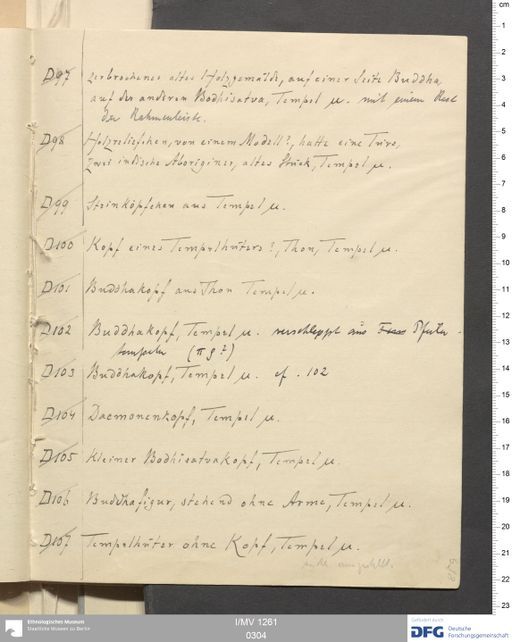 D97 zerbrochenes altes Holzgemälde, auf einer Seite Buddha,
auf der anderen Bodhisatva, Tempel µ. mit einem Rest
der Rahmenleiste.
D98 Holzreliefchen, von einem Modell?, hatte eine Türe,
zwei indische Aboriginer, altes Stück, Tempel µ.
D99 Steinköpfchen aus Tempel µ.
D100 Kopf eines Tempelhüters?, Thon, Tempel µ.
D101 Buddhakopf aus Thon Tempel µ.
D102 Buddhakopf, Tempel µ. verschleppt aus
(π 9?)
D103 Buddhakopf, Tempel µ. cf. 102
D104 Daemonenkopf, Tempel µ.
D105 Kleiner Bodhisatvakopf, Tempel µ.
D106 Buddhafigur, stehend ohne Arme, Tempel µ.
D107 Tempelhüter ohne Kopf, Tempel µ.
cm
1
2
3
4
5
6
7
8
9
10
11
12
13
14
15
16
17
18
19
20
21
22
23
Ethnologisches Museum
Staatliche Museen zu Berlin
I/MV 1261
0304
Gefördert durch
DFG Deutsche
Forschungsgemeinschaft